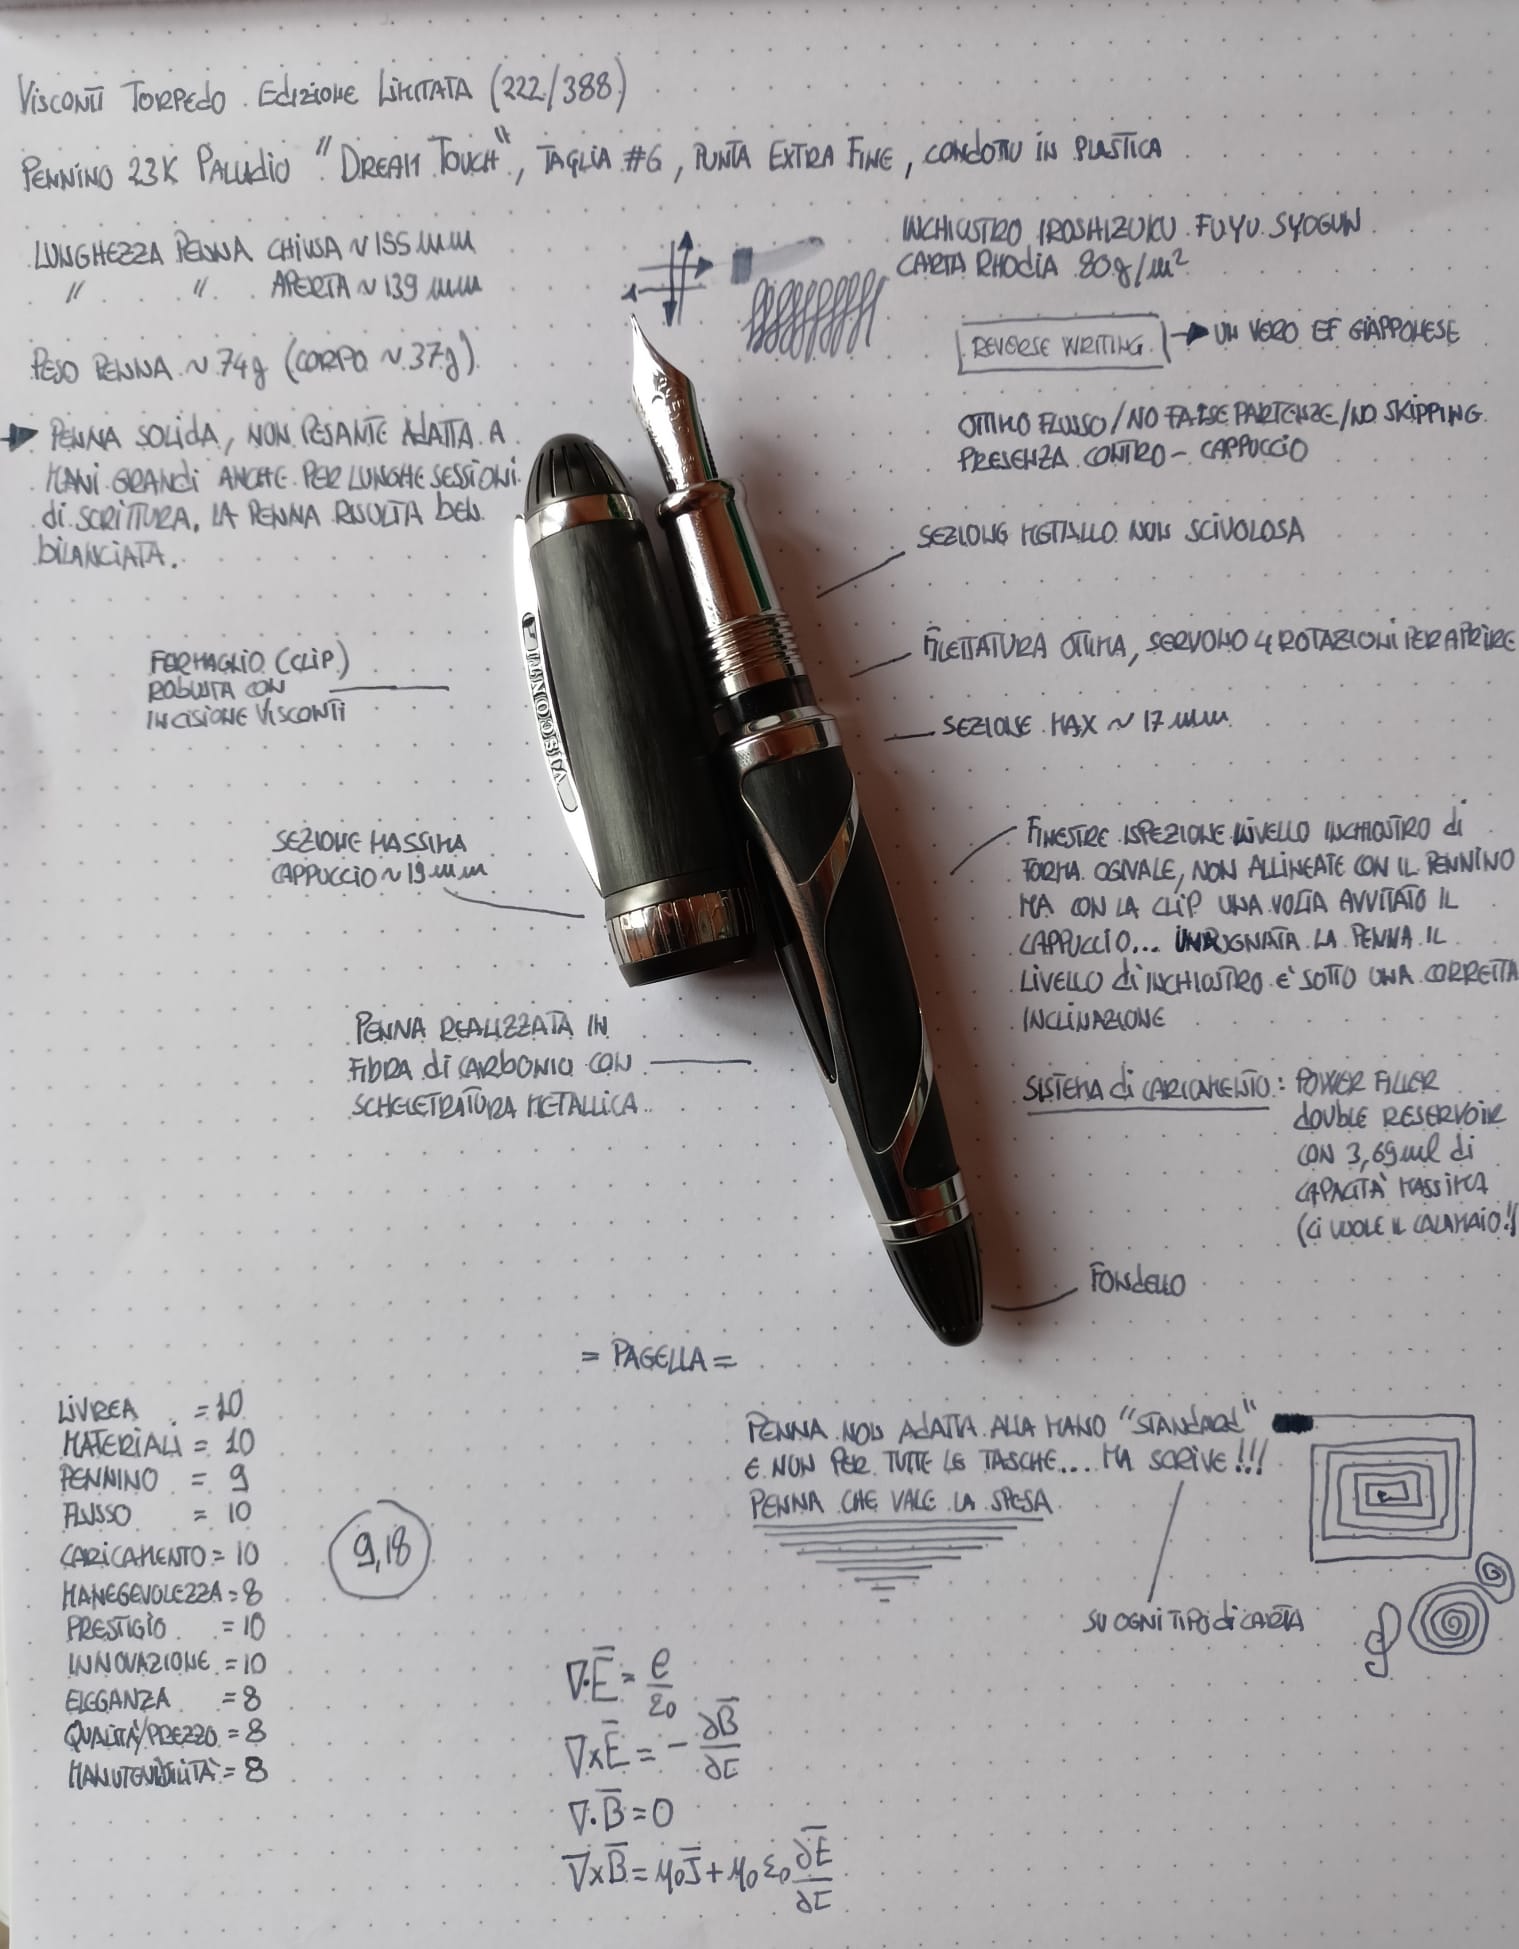 Visconti Torpedo Edizione Limitata (222/388)
Pennino 23K Palladio "Dream Touch", taglia #6, punta extra fine, condotto in plastica
Lunghezza penna chiusa ~ 155 mm
" " aperta ~ 139 mm
Peso penna ~ 74g (corpo ~ 37g)
→ Penna solida, non pesante adatta a
mani grandi anche per lunghe sessioni
di scrittura, la penna risulta ben
bilanciata.
Inchiostro Iroshizuku Fuyu Syogun
Carta Rhodia 80g/m²
Reverse writing → un vero EF giapponese
Ottimo flusso/no false partenze/no skipping
Presenza contro-cappuccio
Sezione metallo non scivolosa
Filettatura ottima, servono 4 rotazioni per aprire
Sezione max ~ 17 mm
Fermaglio (clip)
robusta con
incisione Visconti
VISCONTI
Sezione massima
cappuccio ~ 19 mm
Finestre ispezione livello inchiostro di
forma ogivale, non allineate con il pennino
ma con la clip una volta avvitato il
cappuccio... impugnata la penna il
livello di inchiostro è sotto una corretta
inclinazione
Penna realizzata in
fibra di carbonio con
scheletratura metallica
Sistema di caricamento: power filler
double reservoir
con 3,69ml di
capacità massima
(ci vuole il calamaio!)
Fondello
= Pagella =
Livrea = 10
Materiali = 10
Pennino = 9
Flusso = 10
Caricamento = 10
Manegevolezza = 8
Prestigio = 10
Innovazione = 10
Eleganza = 8
Qualità/prezzo = 8
Manutenibilità = 8
9,18
Penna non adatta alla mano "standard"
e non per tutte le tasche.... ma scrive!!!
Penna che vale la spesa
su ogni tipo di carta
∇·E̅ = ρ/ε0
∇×E̅ = - ∂B̅/∂t
∇·B̅ = 0
∇×B̅ = μ0J̅ + μ0ε0 ∂E̅/∂t